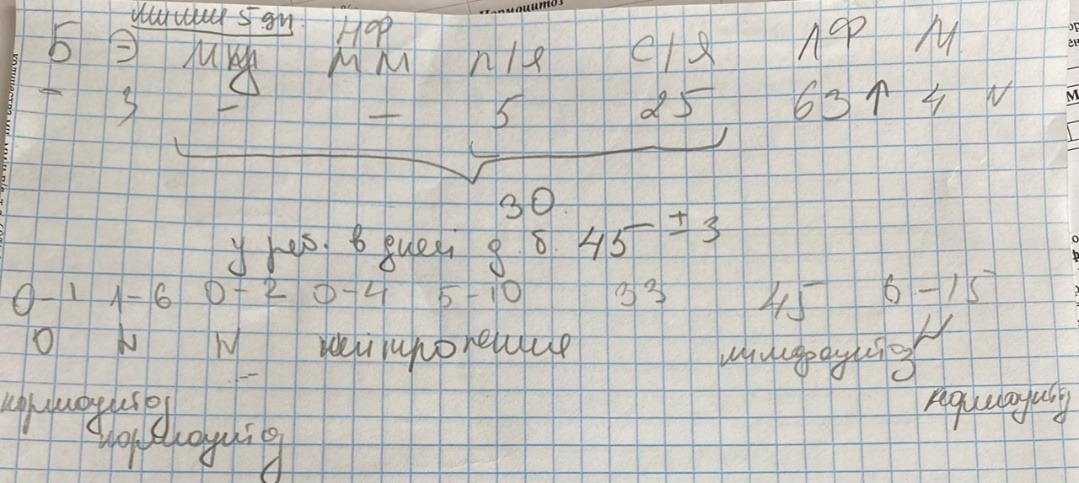 5 дн. НФ
Б Э Мкц ММ п/я с/я ЛФ М
- 3 - - 5 25 63↑ 4 N
30
у реб. 6 дней д. б. 45 ± 3
0-1 1-6 0-2 0-4 5-10 33 45 6-15
0 N N нейтропения лимфоцитоз N
нормоцитоз нормоцитоз
нормоцитоз